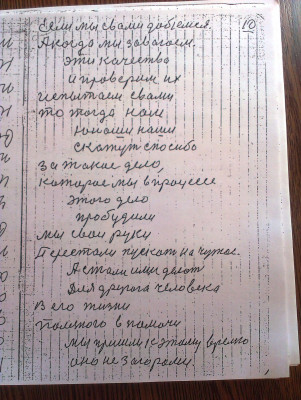 10
Если мы с вами добъемся.
А когда мы завоюем.
эти качества
и проверим их
испытаем с вами
то тогда нам
юноши наши
скажут спосибо
За такое дело,
каторае мы в процессе
этого дело
пробудили
мы свои руки
Перестали пускат на чужое.
А стали им
для другога человека
В его жизни
в памочи
мы пришли к этаму время
оно не за горами